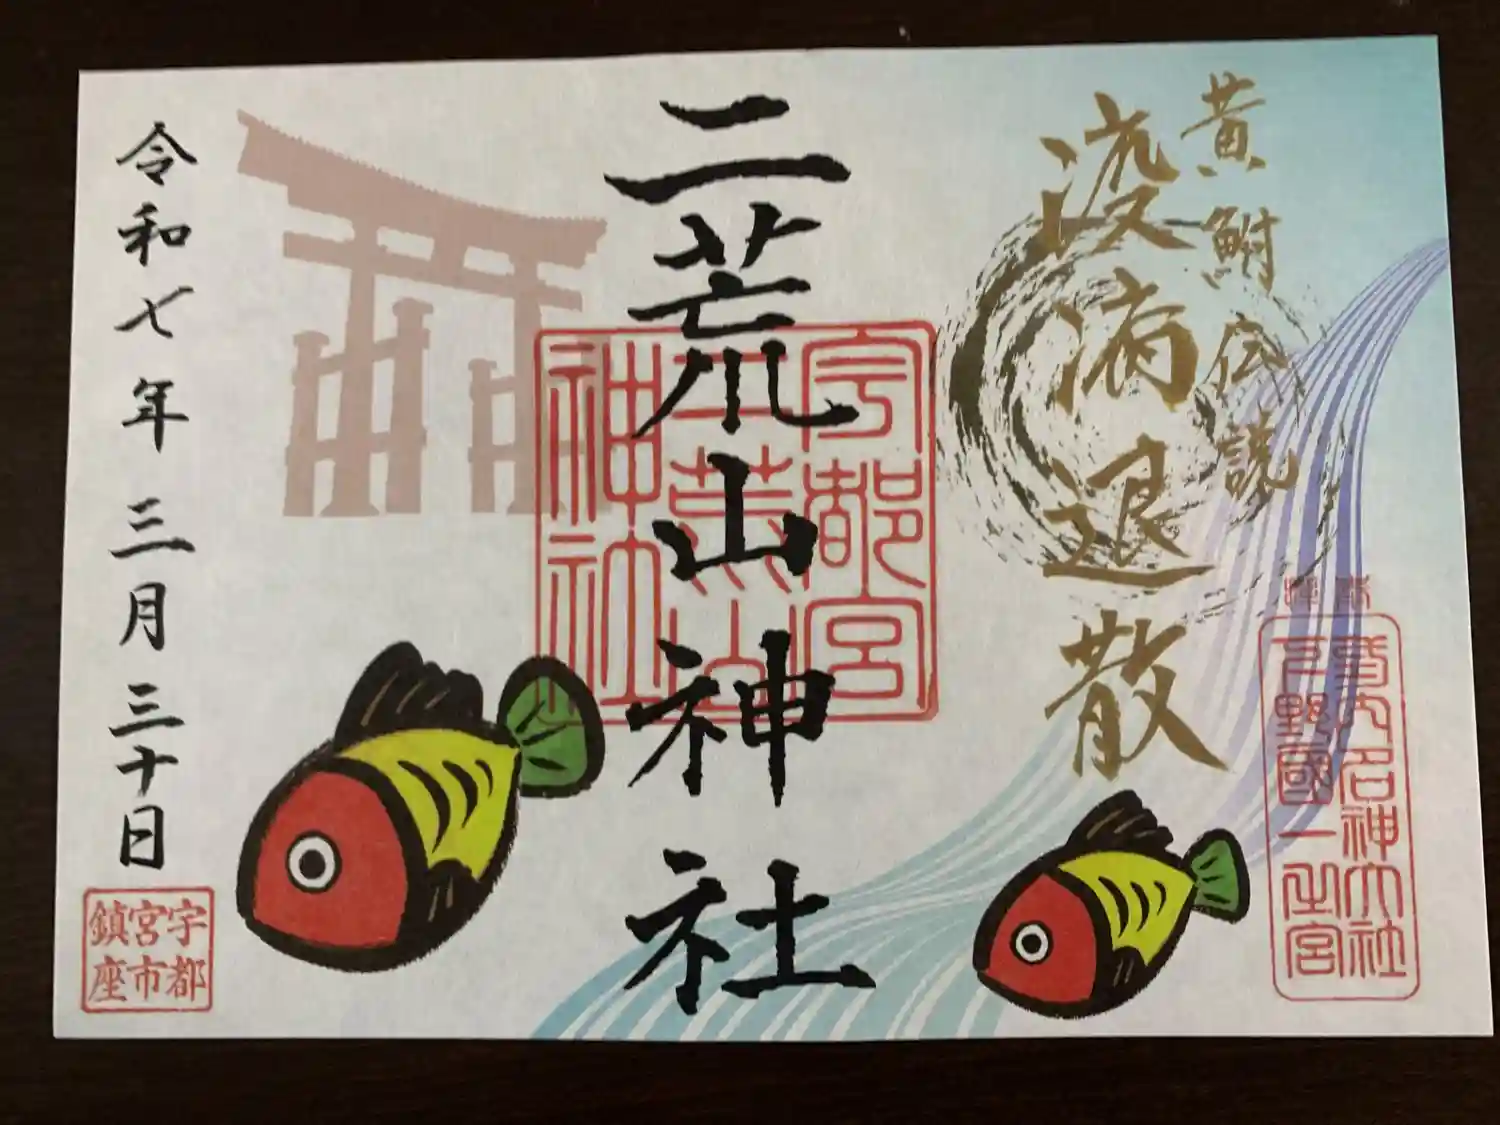 黄鮒伝説
疫病退散
式内名神大社
下野國一之宮
二荒山神社
宇都宮
二荒山
神社
令和七年三月三十日
宇都
宮市
鎮座